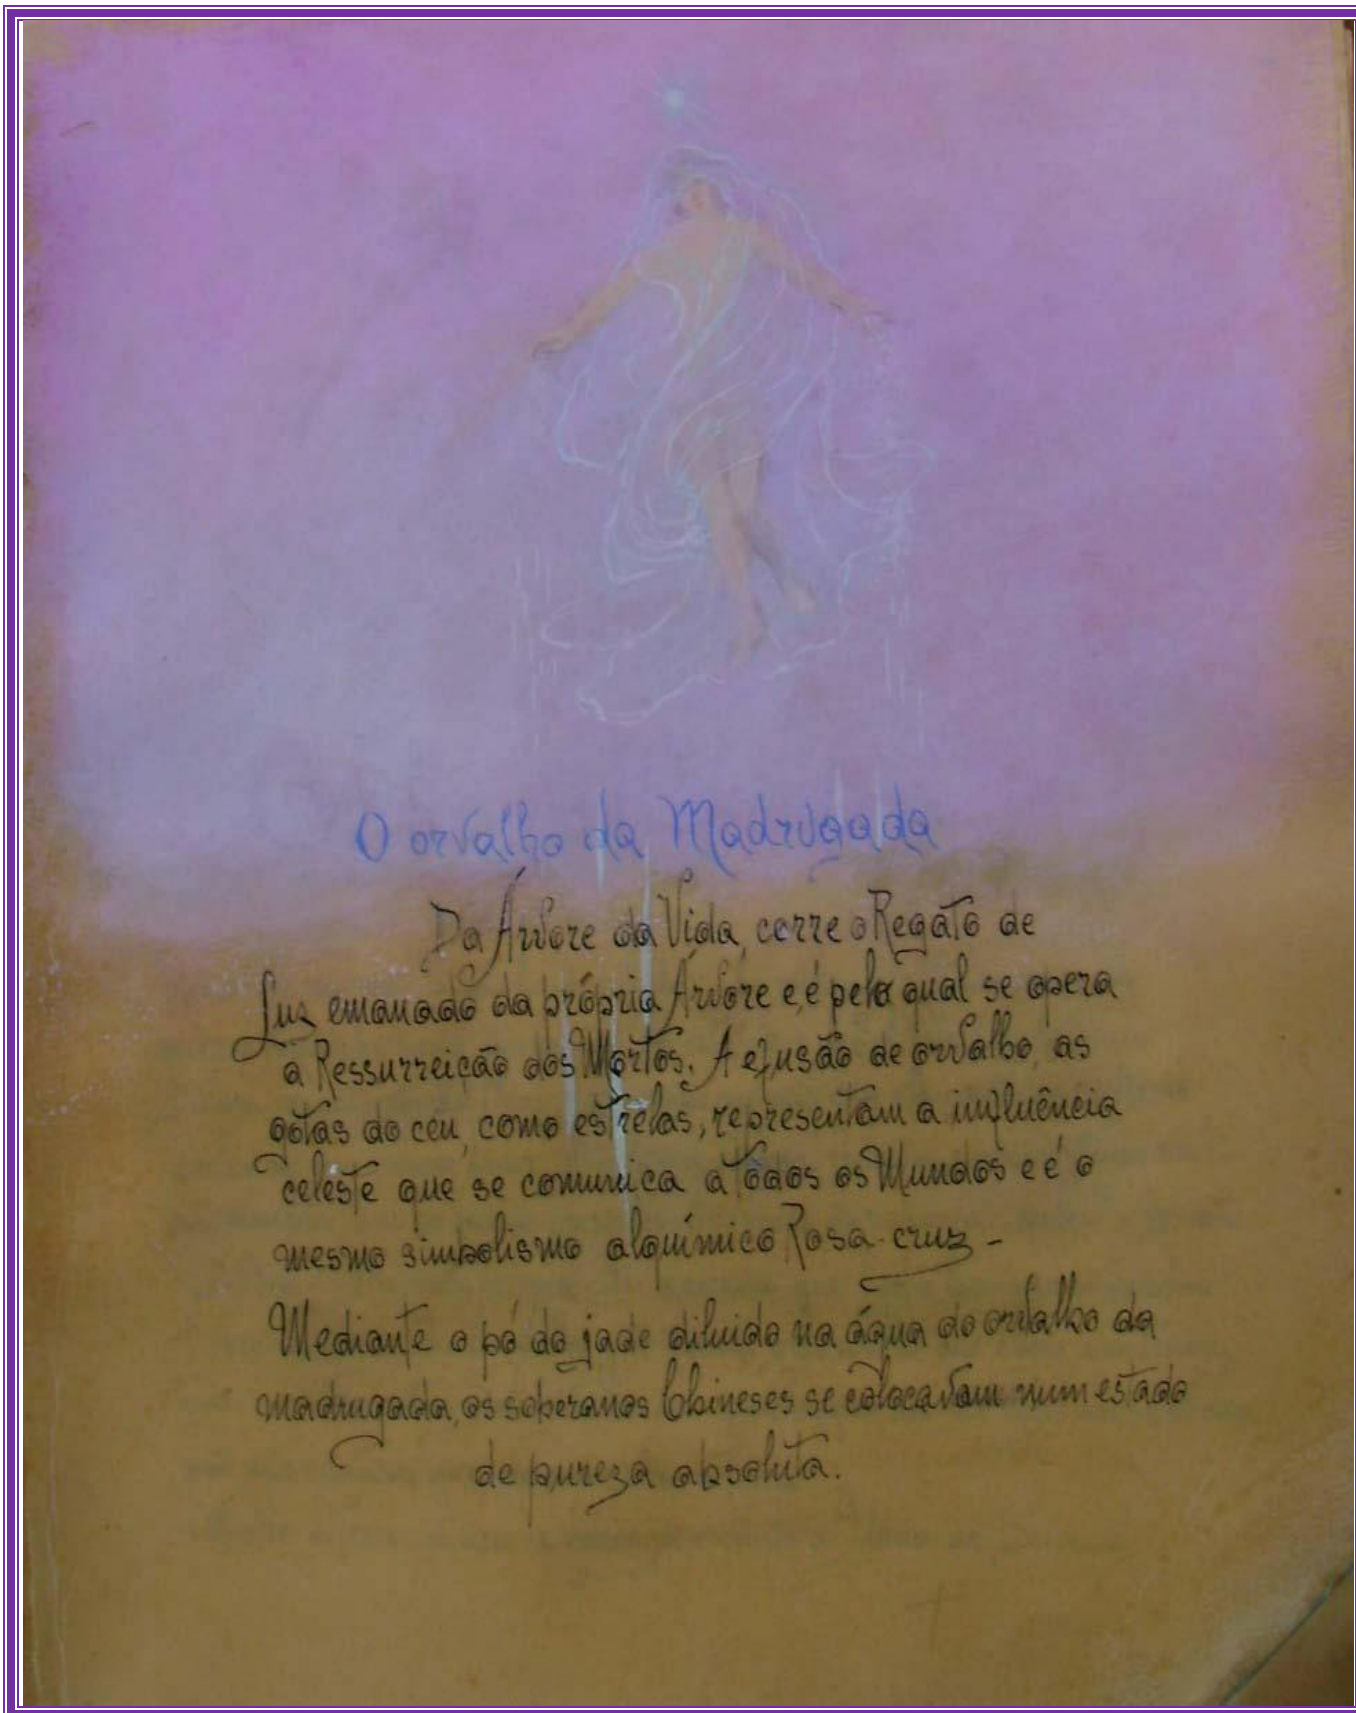 O orvalho da Madrugada
Da Árvore da Vida, corre o Regato de
Luz emanado da própria Árvore e, é pelo qual se opera
a Ressurreição dos Mortos. A efusão de orvalho, as
gotas do céu, como estrelas, representam a influência
celeste que se comunica a todos os Mundos e é o
mesmo simbolismo alquímico Rosa-cruz -
Mediante o pó do jade diluido na água do orvalho da
madrugada, os soberanos Chineses se colocavam num estado
de pureza absoluta.